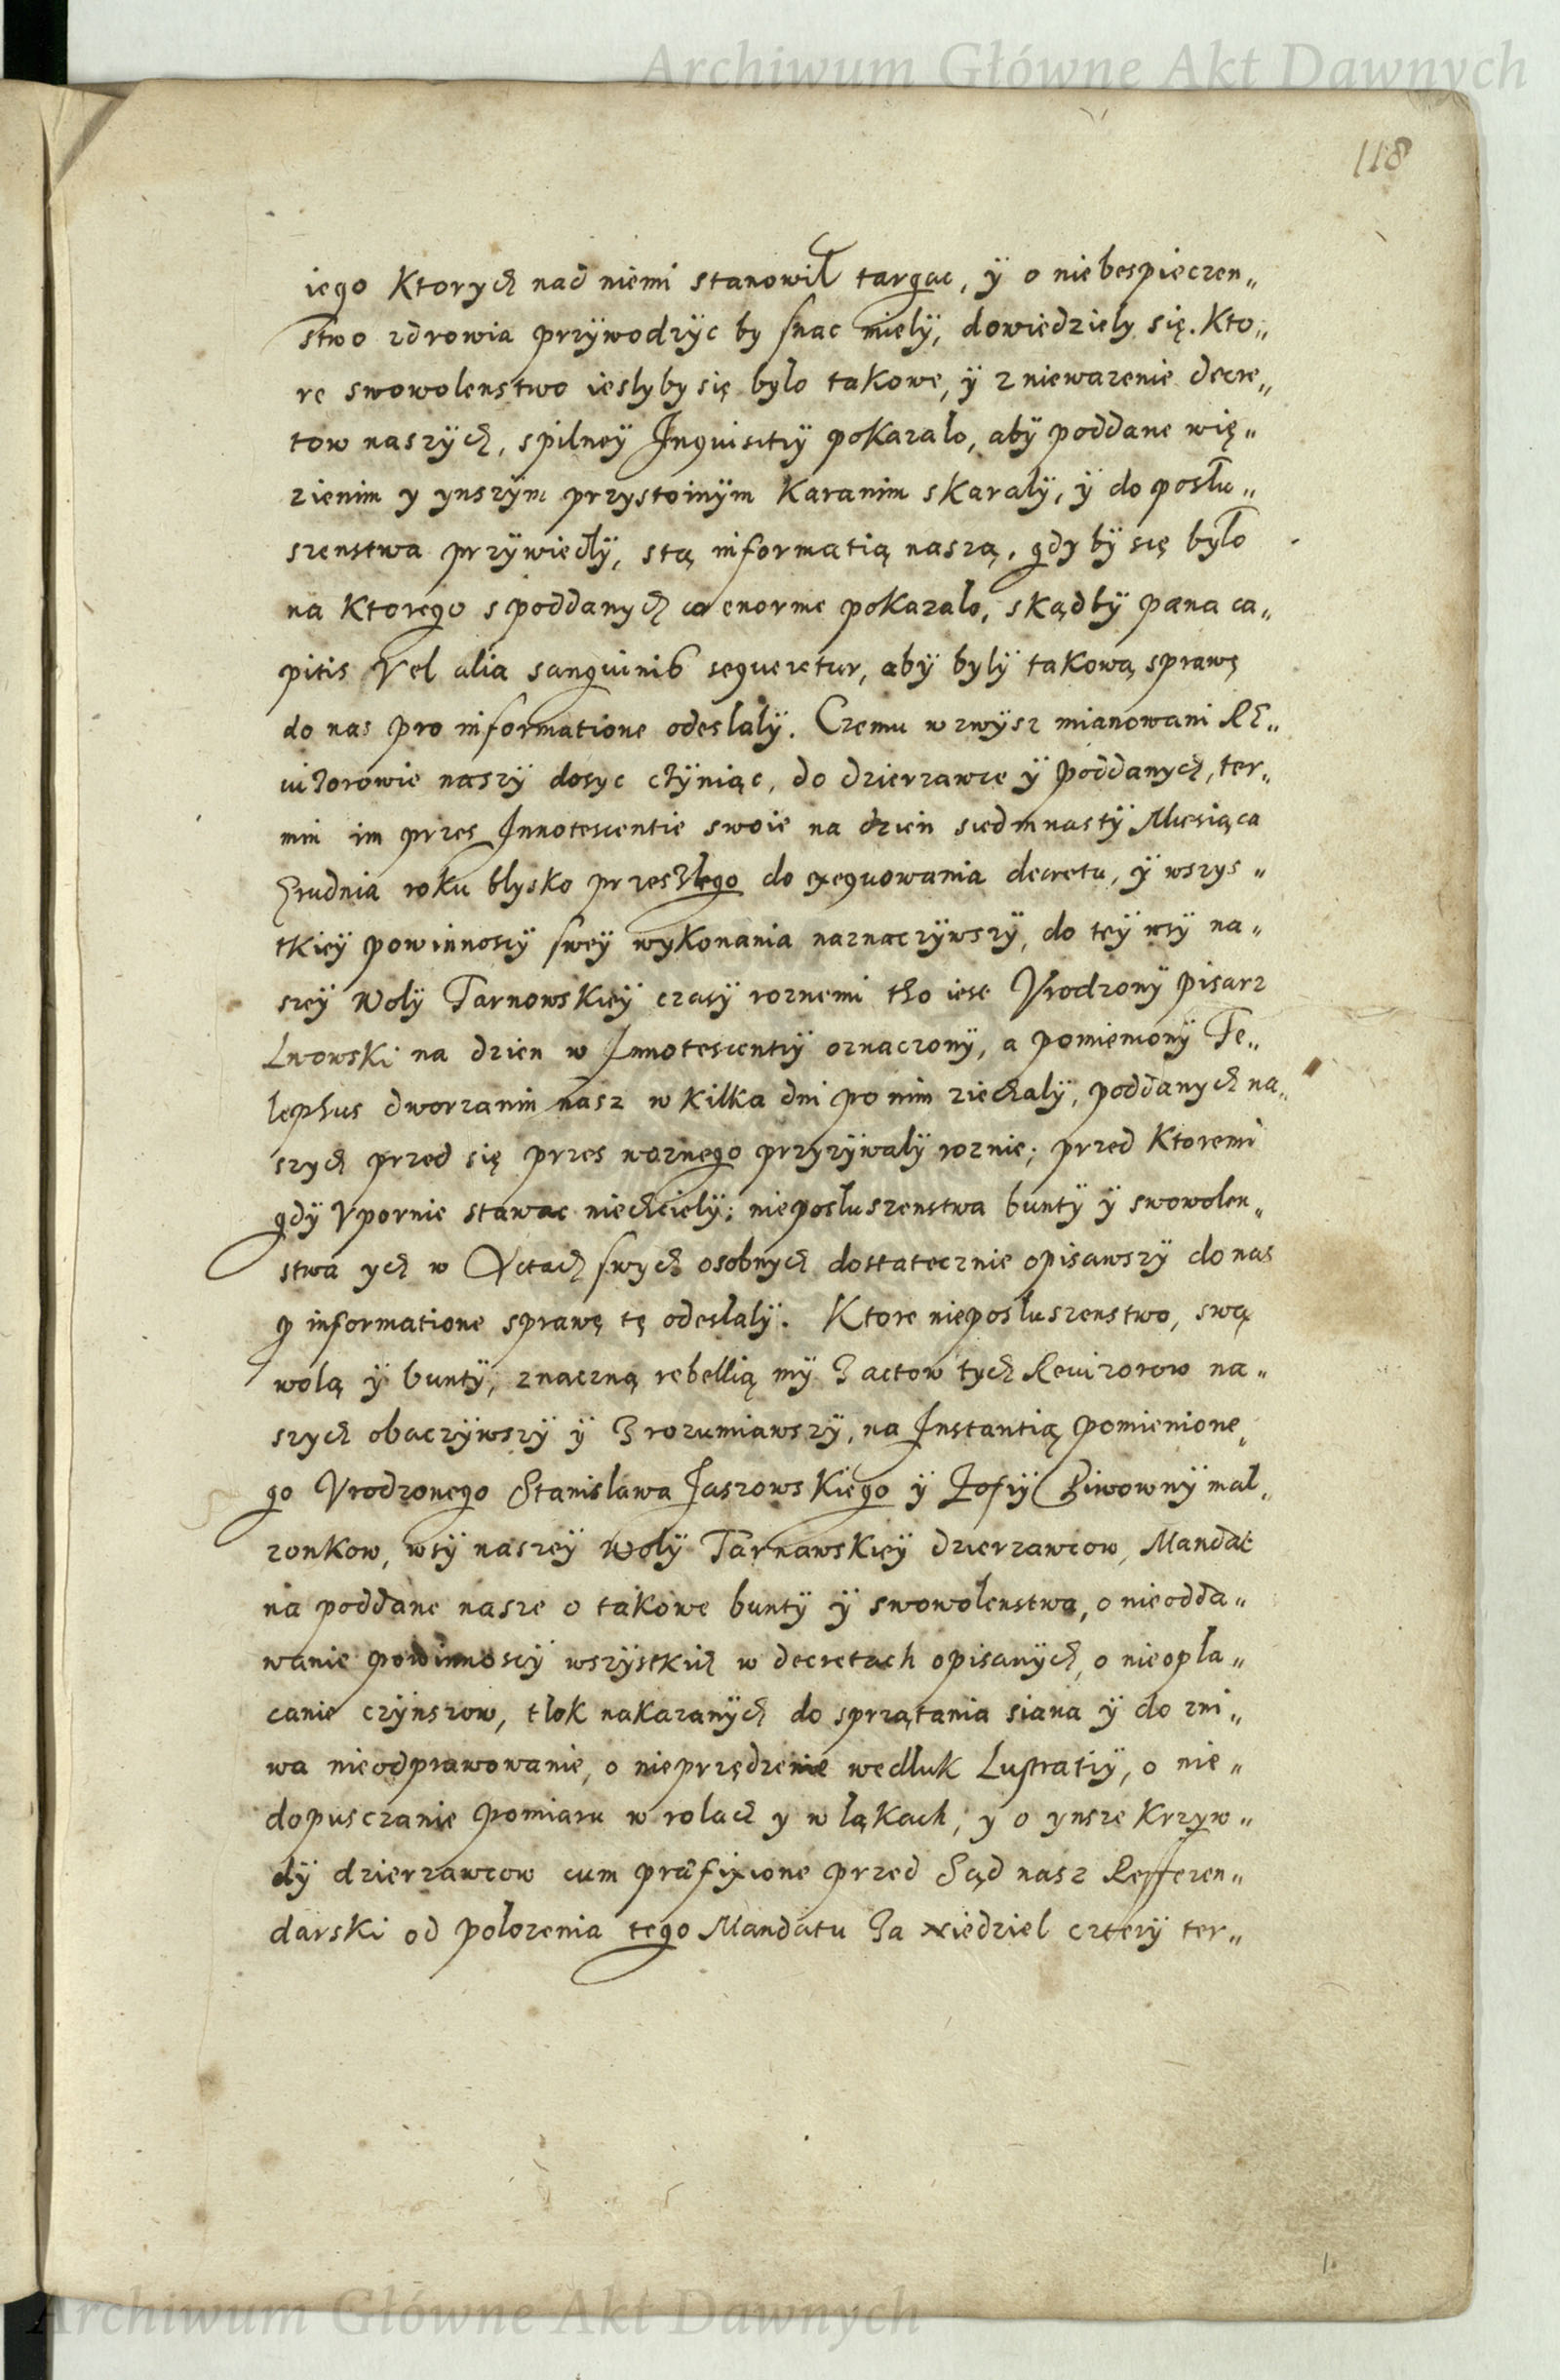 Archiwum Główne Akt Dawnych
118
iego Ktorych nad niemi stanowił targac, ÿ o niebespieczen„
stwo zdrowia przÿwodzÿc by snac miely, dowiedziely się. Kto„
re swowolenstwo ieslyby się bylo takowe, ÿ zniewazenie decre„
tow naszÿch, spilneÿ Inquisitiÿ pokazalo, abÿ poddane wię„
zienim y ynszÿm przystoinÿm Karanim skaralÿ, ÿ do posłu„
szenstwa przÿwiedlÿ, stą informatią naszą, gdy bÿ się było
na Ktorego spoddanych co enorme pokazalo, skądbÿ pæna ca„
pitis Vel alia sanguinis sequeretur, abÿ bylÿ takową sprawę
do nas pro informatione odeslalÿ. Czemu wzwÿsz mianowani RE„
uizorowie naszÿ dosyc cżÿniąc, do dzierzawce ÿ poddanych, ter„
min im przes Innotescentie swoie na dzień siedmnastÿ Miesiąca
Grudnia roku blysko przeszłego do exequowania decretu, ÿ wszys„
tkieÿ powinnoscÿ sweÿ wykonania naznaczÿwszÿ, do teÿ wsÿ na„
szeÿ Wolÿ Tarnowskieÿ czasÿ roznemi tho iest Vrodzonÿ pisarz
Lwowski na dzien w Innotescentiÿ oznaczonÿ, a pomienionÿ Te„
lephus dworzanin nasz w kilka dni po nim ziechalÿ, poddanych na„
szych przed się przes woznego przyzÿwalÿ roznie; przed Ktoremi
gdÿ Vpornie stawac niechcielÿ; nieposluszenstwa buntÿ ÿ swowolen„
stwa ych w Actach swych osobnych dostatecznie opisawszÿ do nas
p informatione sprawę tę odeslalÿ. Ktore nieposluszenstwo, swą
wolą ÿ buntÿ, znaczną rebellią mÿ z actow tych Reuizorow na„
szych obaczÿwszÿ ÿ zrozumiawszÿ, na Instantią pomienione„
go Vrodzonego Stanislawa Jaszowskiego ÿ Zofiÿ Piwownÿ mal„
zonkow, wsÿ naszeÿ Wolÿ Tarnawskieÿ dzierzawcow, Mandat
na poddane nasze o takowe buntÿ ÿ swowolenstwa, o nieodda„
wanie powinnoscÿ wszÿstkich w decretach opisanÿch, o nieopla„
canie czÿnszow, tlok nakazanÿch do sprzątania siana ÿ do zni„
wa nieodprawowanie, o nieprzędzenie wedluk Lustratiÿ, o nie„
dopusczanie pomiaru w rolach y w łąkach, y o ynsze Krzyw„
dÿ dzierzawcow cum præfixione przed Sąd nasz Refferen„
darski od polozenia tego Mandatu za niedziel czterÿ ter„
1.
Archiwum Główne Akt Dawnych